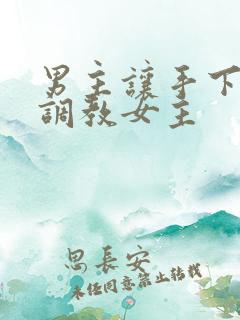 男主讓手下
調教女主
思長安
未經同意禁止轉載